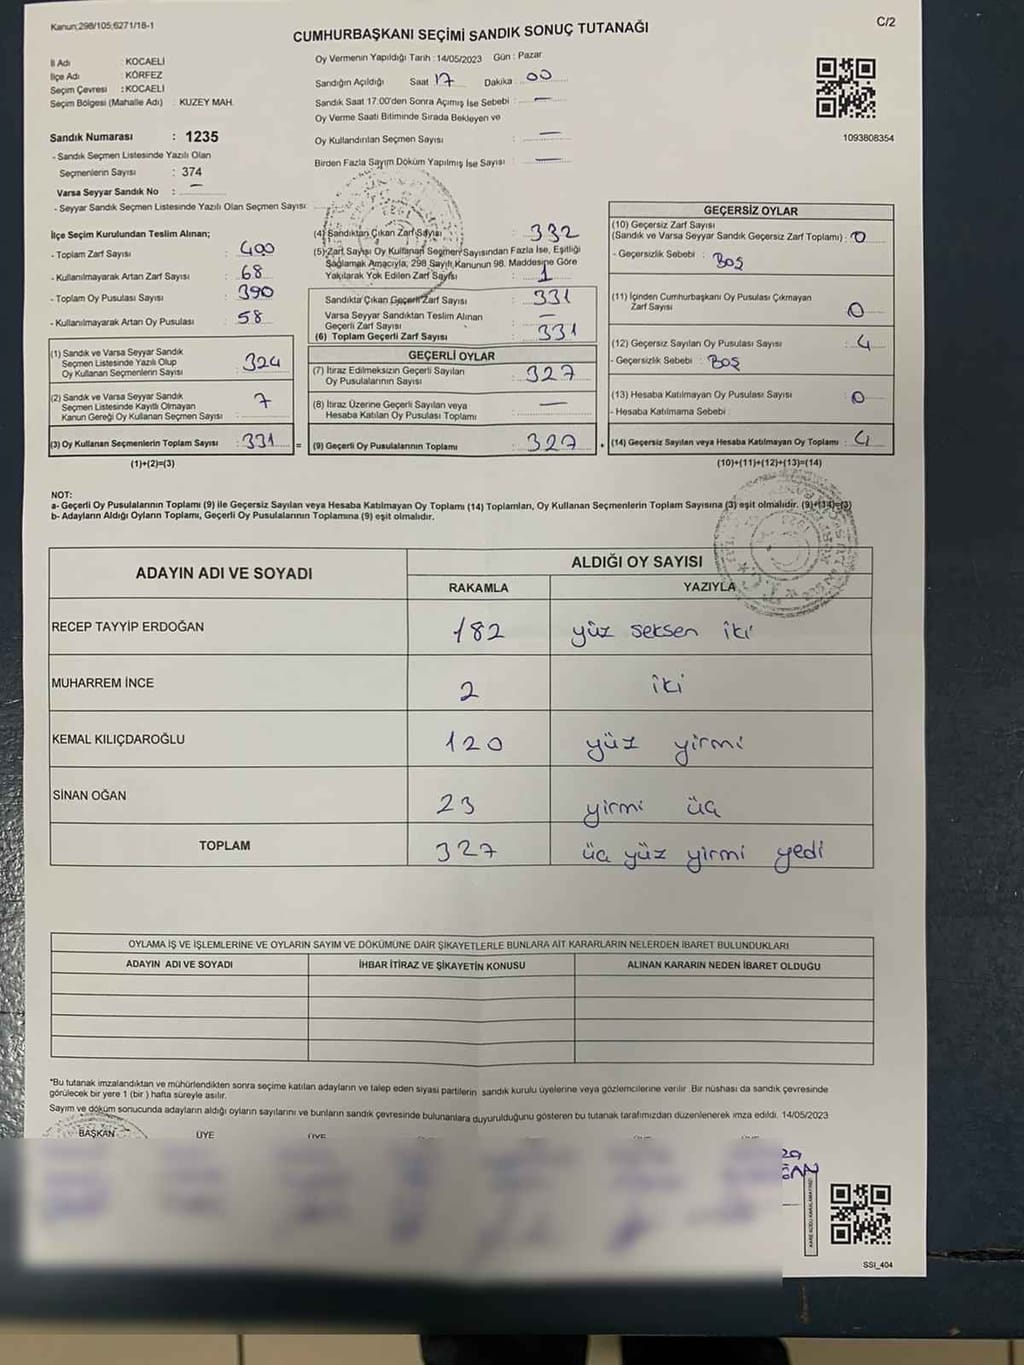 Kanun;298/105;6271/18-1
C/2
CUMHURBAŞKANI SEÇİMİ SANDIK SONUÇ TUTANAĞI
İl Adı : KOCAELİ
İlçe Adı : KÖRFEZ
Seçim Çevresi : KOCAELİ
Seçim Bölgesi (Mahalle Adı) : KUZEY MAH.
Sandık Numarası : 1235
- Sandık Seçmen Listesinde Yazılı Olan
Seçmenlerin Sayısı : 374
Varsa Seyyar Sandık No : —
- Seyyar Sandık Seçmen Listesinde Yazılı Olan Seçmen Sayısı:
Oy Vermenin Yapıldığı Tarih : 14/05/2023 Gün : Pazar
Sandığın Açıldığı Saat 17 Dakika 00
Sandık Saat 17:00'den Sonra Açımış İse Sebebi : —
Oy Verme Saati Bitiminde Sırada Bekleyen ve
Oy Kullandırılan Seçmen Sayısı : —
Birden Fazla Sayım Döküm Yapılmış İse Sayısı : —
1093808354
İlçe Seçim Kurulundan Teslim Alınan;
- Toplam Zarf Sayısı : 400
- Kullanılmayarak Artan Zarf Sayısı : 68
- Toplam Oy Pusulası Sayısı : 390
- Kullanılmayarak Artan Oy Pusulası : 58
(1) Sandık ve Varsa Seyyar Sandık
Seçmen Listesinde Yazılı Olup
Oy Kullanan Seçmenlerin Sayısı : 324
(2) Sandık ve Varsa Seyyar Sandık
Seçmen Listesinde Kayıtlı Olmayan
Kanun Gereği Oy Kullanan Seçmen Sayısı : 7
(3) Oy Kullanan Seçmenlerin Toplam Sayısı : 331
(1)+(2)=(3)
(4) Sandıktan Çıkan Zarf Sayısı : 332
(5) Zarf Sayısı Oy Kullanan Seçmen Sayısından Fazla İse, Eşitliği
Sağlamak Amacıyla, 298 Sayılı Kanunun 98. Maddesine Göre
Yakılarak Yok Edilen Zarf Sayısı : 1
Sandıkta Çıkan Geçerli Zarf Sayısı : 331
Varsa Seyyar Sandıktan Teslim Alınan
Geçerli Zarf Sayısı : —
(6) Toplam Geçerli Zarf Sayısı : 331
GEÇERLİ OYLAR
(7) İtiraz Edilmeksizin Geçerli Sayılan
Oy Pusulalarının Sayısı : 327
(8) İtiraz Üzerine Geçerli Sayılan veya
Hesaba Katılan Oy Pusulası Toplamı : —
= (9) Geçerli Oy Pusulalarının Toplamı : 327
GEÇERSİZ OYLAR
(10) Geçersiz Zarf Sayısı
(Sandık ve Varsa Seyyar Sandık Geçersiz Zarf Toplamı) : 0
- Geçersizlik Sebebi : BOŞ
(11) İçinden Cumhurbaşkanı Oy Pusulası Çıkmayan
Zarf Sayısı : 0
(12) Geçersiz Sayılan Oy Pusulası Sayısı : 4
- Geçersizlik Sebebi : BOŞ
(13) Hesaba Katılmayan Oy Pusulası Sayısı : 0
- Hesaba Katılmama Sebebi :
(14) Geçersiz Sayılan veya Hesaba Katılmayan Oy Toplamı : 4
(10)+(11)+(12)+(13)=(14)
NOT:
a- Geçerli Oy Pusulalarının Toplamı (9) ile Geçersiz Sayılan veya Hesaba Katılmayan Oy Toplamı (14) Toplamları, Oy Kullanan Seçmenlerin Toplam Sayısına (3) eşit olmalıdır. (9)+(14)=(3)
b- Adayların Aldığı Oyların Toplamı, Geçerli Oy Pusulalarının Toplamına (9) eşit olmalıdır.
ADAYIN ADI VE SOYADI
ALDIĞI OY SAYISI
RAKAMLA YAZIYLA
RECEP TAYYİP ERDOĞAN 182 yüz seksen iki
MUHARREM İNCE 2 iki
KEMAL KILIÇDAROĞLU 120 yüz yirmi
SİNAN OĞAN 23 yirmi üç
TOPLAM 327 üç yüz yirmi yedi
OYLAMA İŞ VE İŞLEMLERİNE VE OYLARIN SAYIM VE DÖKÜMÜNE DAİR ŞİKAYETLERLE BUNLARA AİT KARARLARIN NELERDEN İBARET BULUNDUKLARI
ADAYIN ADI VE SOYADI İHBAR İTİRAZ VE ŞİKAYETİN KONUSU ALINAN KARARIN NEDEN İBARET OLDUĞU
*Bu tutanak imzalandıktan ve mühürlendikten sonra seçime katılan adayların ve talep eden siyasi partilerin sandık kurulu üyelerine veya gözlemcilerine verilir. Bir nüshası da sandık çevresinde
görülecek bir yere 1 (bir ) hafta süreyle asılır.
Sayım ve döküm sonucunda adayların aldığı oyların sayılarını ve bunların sandık çevresinde bulunanlara duyurulduğunu gösteren bu tutanak tarafımızdan düzenlenerek imza edildi. 14/05/2023
BAŞKAN ÜYE ÜYE
SSI_404